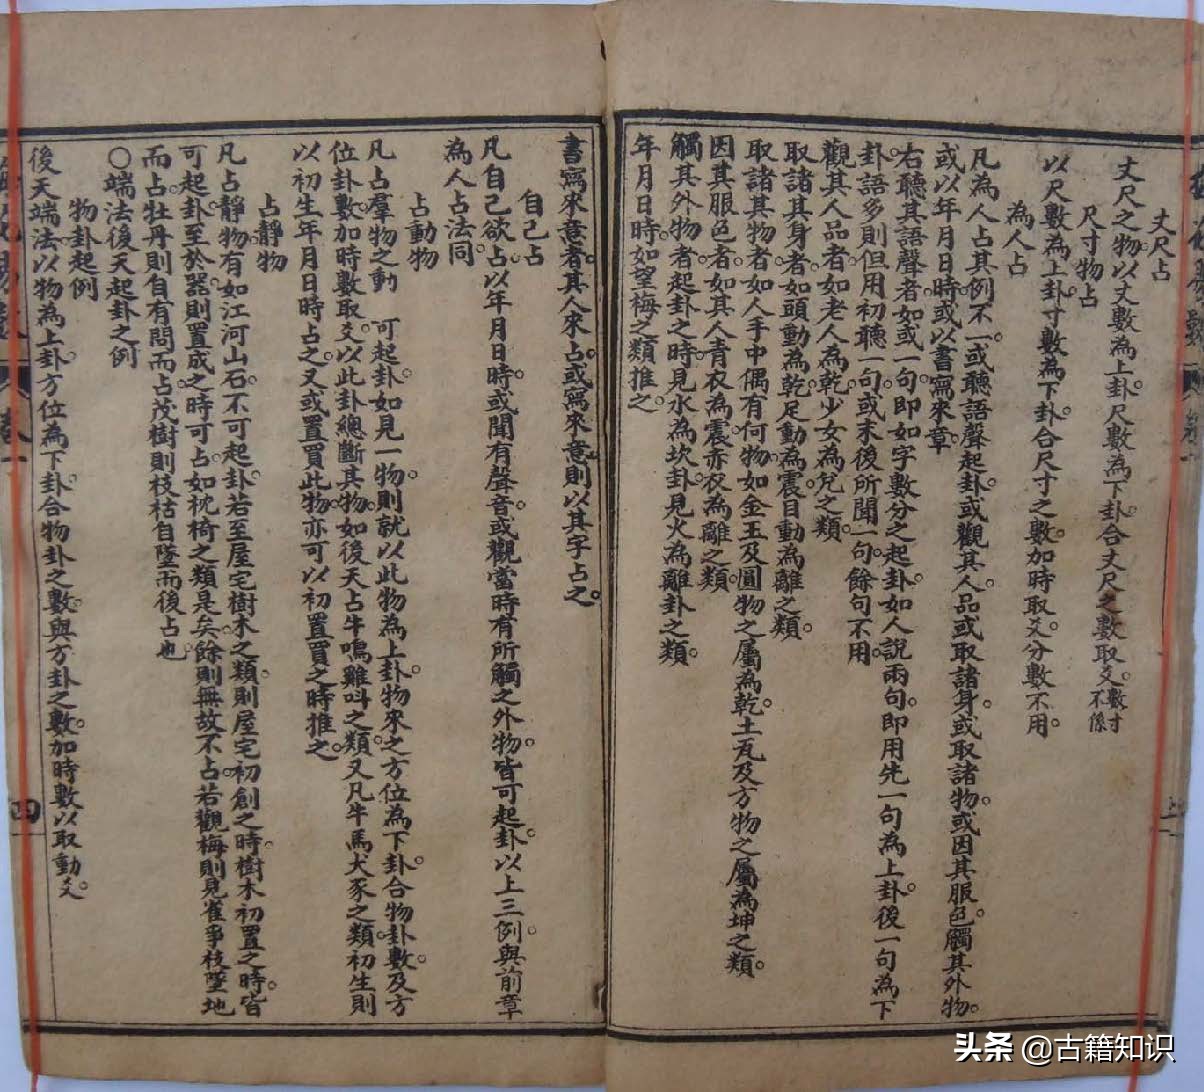 丈尺占
丈尺之物以丈數為上卦。尺數為下卦。合丈尺之數取爻。數寸不係
尺寸物占
以尺數為上卦。寸數為下卦。合尺寸之數。加時取爻。分數不用。
為人占
凡為人占其例不一。或聽語聲起卦。或觀其人品。或取諸身。或取諸物。或因其服色。觸其外物。
或以年月日時。或以書寫來章
右聽其語聲者。如或一句。即如字數分之起卦。如人說兩句。即用先一句為上卦。後一句為下
卦。語多則但用初聽一句。或末後所聞一句。餘句不用。
觀其人品者。如老人為乾。少女為兌之類。
取諸其身者。如頭動為乾。足動為震。目動為離之類。
取諸其物者。如人手中偶有何物。如金玉及圓物之屬為乾。土瓦及方物之屬為坤之類。
因其服色者。如其人青衣為震。赤衣為離之類。
觸其外物者。起卦之時。見水為坎卦。見火為離卦之類。
年月日時。如望梅之類推之。
書寫來意者。其人來占。或寫來意。則以其字占之。
自己占
凡自己欲占。以年月日時。或聞有聲音。或觀當時有所觸之外物。皆可起卦。以上三例。與前章
為人占法同。
占動物
凡占羣物之動 可起卦。如見一物。則就以此物為上卦。物來之方位為下卦。合物卦數。及方
位卦數加時數取爻。以此卦總斷其物。如後天占牛鳴雞叫之類。又凡牛馬犬豕之類。初生則
以初生年月日時占之。又或置買此物。亦可以初置買之時推之。
占靜物
凡占靜物。有如江河山石。不可起卦。若至屋宅樹木之類。則屋宅初創之時。樹木初置之時。皆
可起卦。至於器。則置成之時可占。如枕椅之類是矣。餘則無故不占。若觀梅則見雀爭枝墜地
而占。牡丹則自有問而占。茂樹則枝枯自墜而後占也。
○端法後天起卦之例
物卦起例
後天端法。以物為上卦。方位為下卦。合物卦之數。與方卦之數。加時數以取動爻。
四
上
头条 @古籍知识